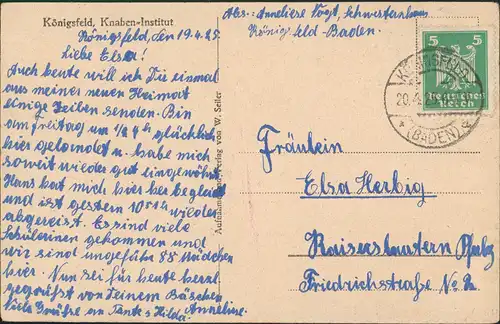 Königsfeld, Knaben-Institut
Königsfeld, den 19.4.25.
Liebe Elsa!
Auch heute will ich Dir einmal
aus meiner neuen Heimat
einige Zeilen senden. Bin
am Freitag um 1/2 4 h glücklich
hier gelandet u. habe mich
soweit wieder gut eingewöhnt.
Hans hat mich hier her begleitet
und ist gestern wieder
abgereist. Es sind viele
Schülerinen gekommen und
wir sind ungefähr 85 Mädchen
hier. Nun sei für heute herzl.
gegrüsst von Deinem Bäschen
Anneliese.
viele Grüsse an Tante u. Hilda.
Aufnahme und Verlag von W. Seiler
Abs.: Anneliese Vogt, Schwesternhaus
Königsfeld-Baden.
5 5
Deutsches
Reich
KÖNIGSFELD
20.4.25
* (BADEN)
Fräulein
Elsa Herbig
Kaiserslautern Pfalz
Friedrichstraße No 2